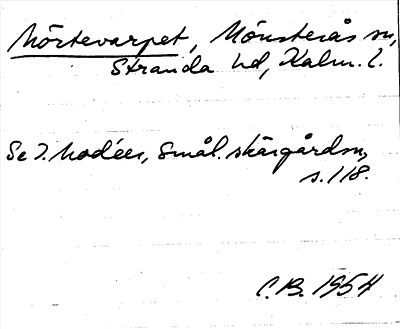 Mörtevarpet, Mönsterås sn,
Stranda hd, Kalm. l.
Se I. Modéer, Smål. skärgårdsn,
s. 118.
C.B. 1954